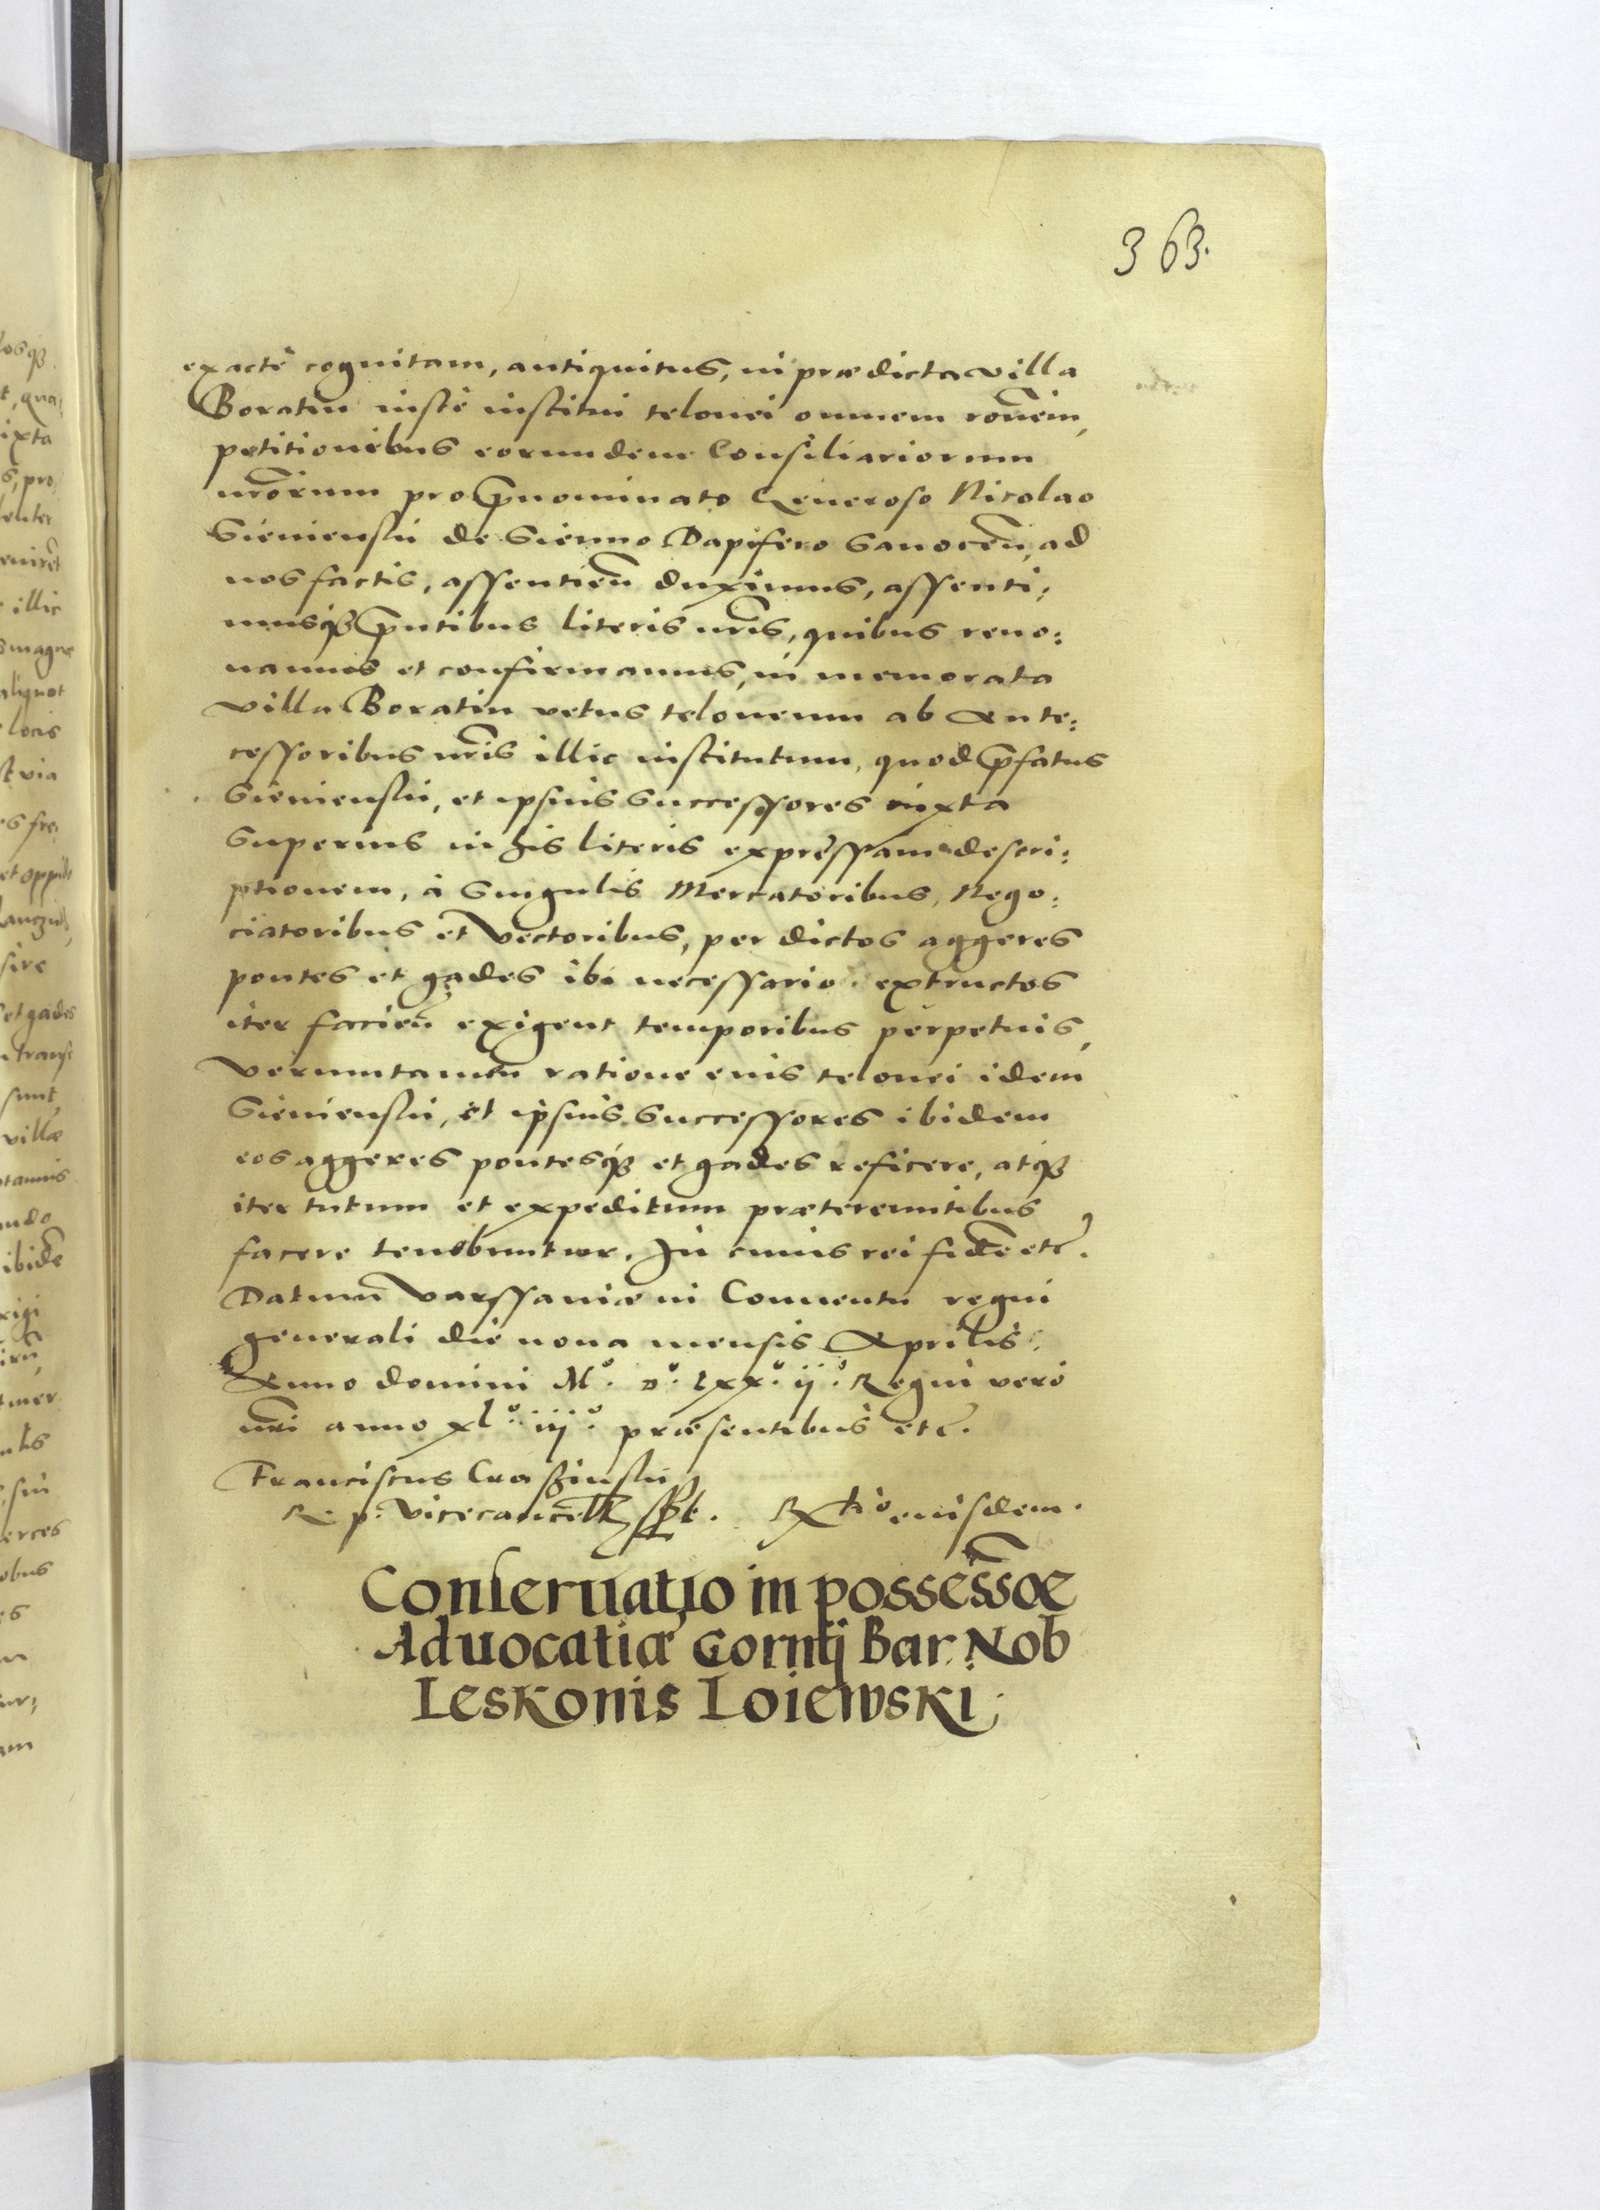 363.
exactè cognitam, antiquitus, in prædicta villa
Boratin iustè institui telonei omnem roñem,
petitionibus eorundem Consiliariorum
nrõrum pro p̃nominato Generoso Nicolao
Sieniensky de Sienno Dapifero Sanoceñ, ad
nos factis, assentieñ duximus, assenti:
musq̃ p̃ntibus literis nr̃is, quibus reno:
uamus et confirmamus, in memorata
villa Boratin vetus teloneum ab Ante:
cessoribus nr̃is illic institutum, quod p̃fatus
Sieniensky, et ipsius Successores iuxta
Superius in his literis expressam descri:
ptionem, à Singulis Mercatoribus, Nego:
ciatoribus et Vectoribus, per dictos aggeres
pontes et gades ibi necessario extructos
iter facieñ exigent temporibus perpetuis,
veruntameñ ratione eius telonei idem
Sieniensky, et ipsius Successores ibidem
eos aggeres pontesq̃ et gades reficere, atq̃
iter tutum et expeditum prætereuntibus
facere tenebuntur. In cuius rei fidẽ etc̃.
Datum Varssauiæ in Conuentu regni
generali die nona mensis Aprilis.
Anno domini Mº. Dº. lxxº. ijº. Regni vero
nr̃i anno xlº. iijº. præsentibus etc̃.
Franciscus Crasinsky
R. p. Vicecancell̃ sspt. Rxtio eiusdem.
Conseruatio in possessõe
Aduocatiæ Gornij Bar Nob
Leskonis Loiewski.